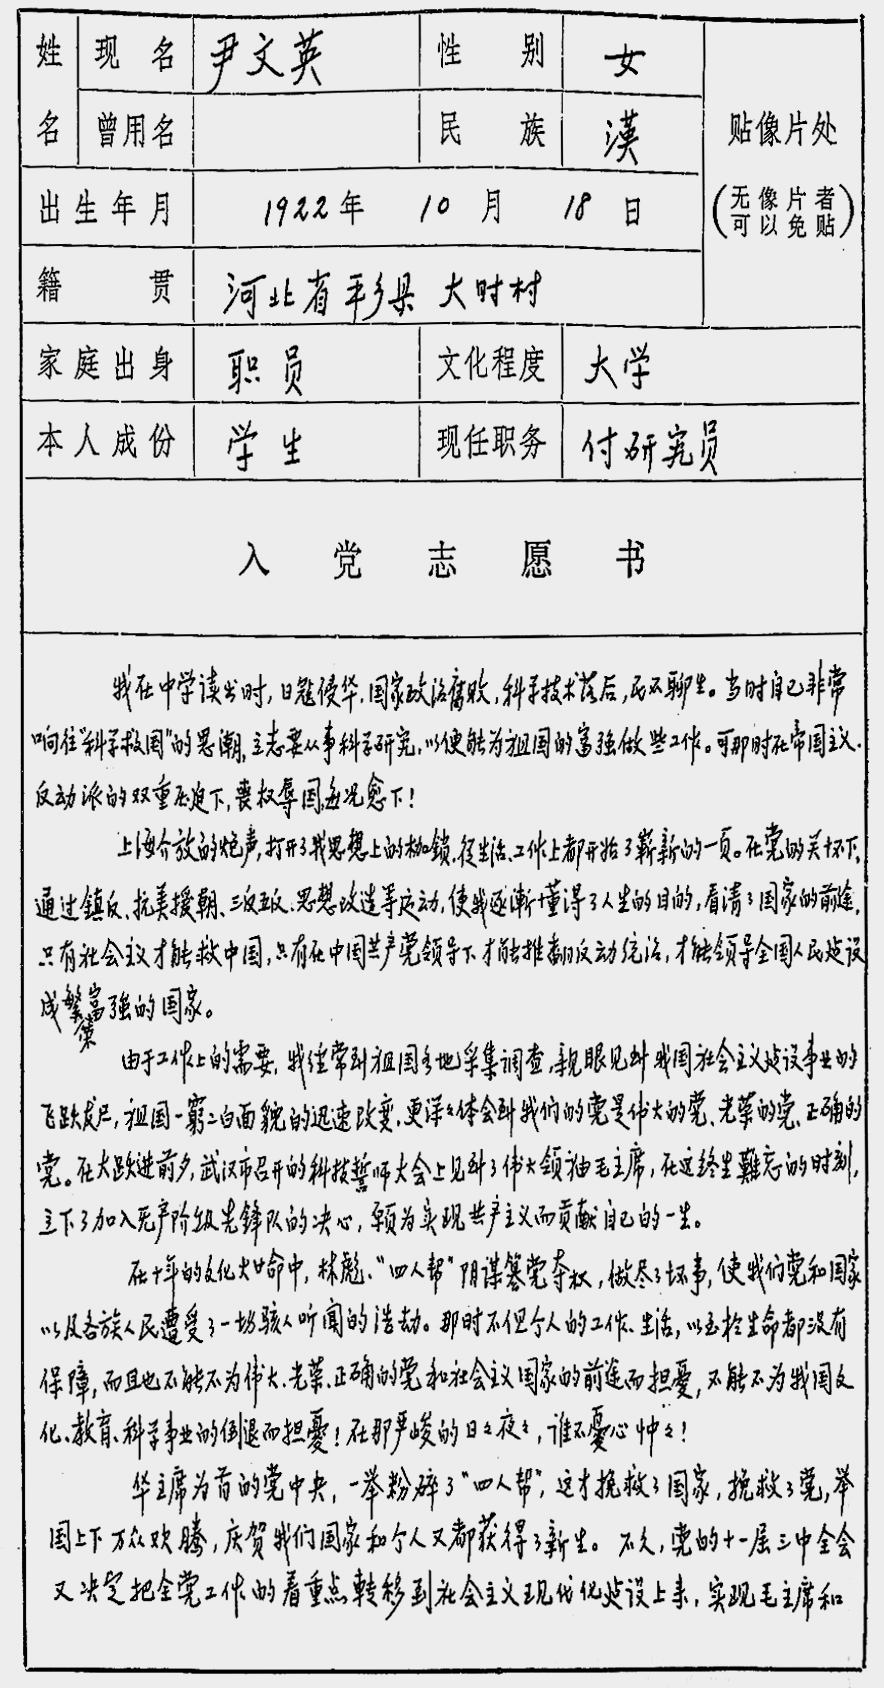 姓 现名 尹文英 性别 女
名 曾用名 民族 漢 贴像片处
出生年月 1922年 10月 18日 (无像片者可以免贴)
籍贯 河北省平乡县 大时村
家庭出身 职员 文化程度 大学
本人成份 学生 现任职务 付研究员
入党志愿书
我在中学读书时,日寇侵华,国家政治腐败,科学技术落后,民不聊生。当时自己非常
响往"科学救国"的思潮,立志要从事科学研究,以便能为祖国的富强做些工作。可那时在帝国主义、
反动派的双重压迫下,丧权辱国每况愈下!
上海介放的炮声,打开了我思想上的枷鎖,从生活、工作上都开始了崭新的一页。在党的关怀下,
通过鎮反、抗美援朝、三反五反、思想改造等运动,使我逐漸懂得了人生的目的,看清了国家的前途,
只有社会主义才能救中国,只有在中国共产党领导下才能推翻反动统治,才能领导全国人民建设
成繁荣富强的国家。
由于工作上的需要,我经常到祖国各地采集调查,亲眼见到我国社会主义建设事业的
飞跃发展,祖国一窮二白面貌的迅速改变,更深々体会到我们的党是伟大的党、光荣的党、正确的
党。在大跃进前夕,武汉市召开的科技誓师大会上见到了伟大领袖毛主席,在这终生難忘的时刻,
立下了加入无产阶级先锋队的决心,願为实现共产主义而贡献自己的一生。
在十年的文化大革命中,林彪、"四人帮"阴谋篡党夺权,做尽了坏事,使我们党和国家
以及各族人民遭受了一场骇人听闻的浩劫。那时不但个人的工作、生活,以至於生命都没有
保障,而且也不能不为伟大、光荣、正确的党和社会主义国家的前途而担憂,不能不为我国文
化、教育、科学事业的倒退而担憂!在那严峻的日々夜々,谁不憂心忡々!
华主席为首的党中央,一举粉碎了"四人帮",这才挽救了国家,挽救了党,举
国上下万众欢腾,庆贺我们国家和个人又都获得了新生。不久,党的十一届三中全会
又决定把全党工作的着重点转移到社会主义现代化建设上来,实现毛主席和